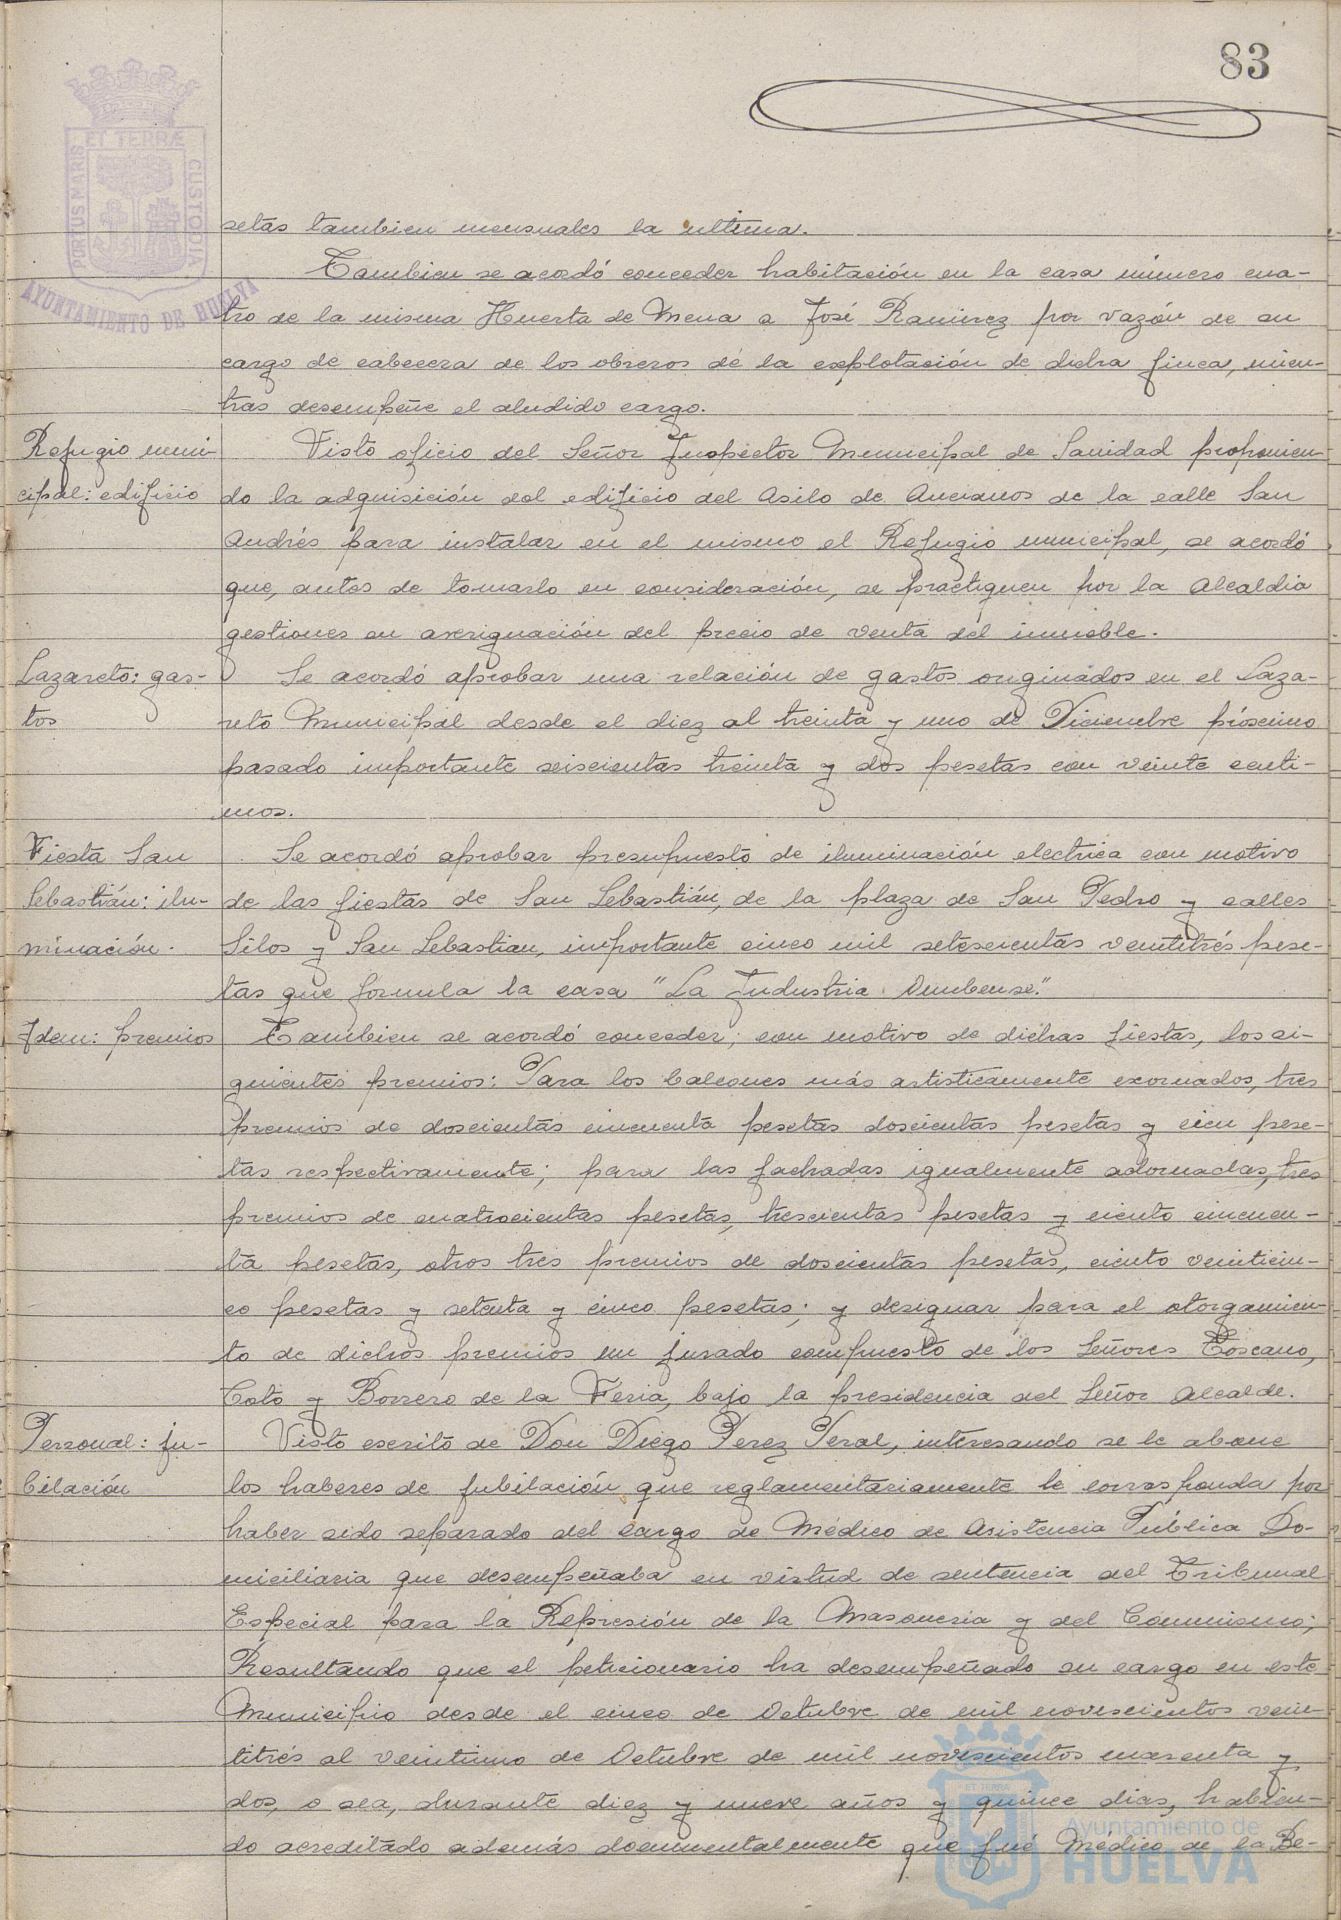 83
ET TERRÆ
PORTUS MARIS
CUSTODIA
AYUNTAMIENTO DE HUELVA
setas tambien mensuales la ultima.
Tambien se acordó conceder habitación en la casa número cua-
tro de la misma Huerta de Mena a José Ramirez por razón de su
cargo de cabecera de los obreros de la explotación de dicha finca, mien-
tras desempeñe el aludido cargo.
Refugio muni-
cipal: edificio
Visto oficio del Señor Inspector Municipal de Sanidad proponien-
do la adquisición del edificio del Asilo de Ancianos de la calle San
Andrés para instalar en el mismo el Refugio municipal, se acordó
que, antes de tomarlo en consideración, se practiquen por la Alcaldia
gestiones en averiguación del precio de venta del inmueble.
Lazareto: gas-
tos
Se acordó aprobar una relación de gastos originados en el Laza-
reto Municipal desde el diez al treinta y uno de Diciembre próximo
pasado importante seiscientas treinta y dos pesetas con veinte centi-
mos.
Fiesta San
Sebastián: ilu-
minación.
Se acordó aprobar presupuesto de iluminación electrica con motivo
de las fiestas de San Sebastián, de la plaza de San Pedro y calles
Silos y San Sebastian, importante cinco mil setescientas veintitrés pese-
tas que formula la casa "La Industria Onubense."
Idem: premios
Tambien se acordó conceder, con motivo de dichas fiestas, los si-
guientes premios: Para los balcones más artisticamente exornados, tres
premios de doscientas cincuenta pesetas doscientas pesetas y cien pese-
tas respectivamente; para las fachadas igualmente adornadas, tres
premios de cuatrocientas pesetas, trescientas pesetas y ciento cincuen-
ta pesetas, otros tres premios de doscientas pesetas, ciento veinticin-
co pesetas y setenta y cinco pesetas; y designar para el otorgamien-
to de dichos premios un jurado compuesto de los Señores Toscano,
Coto y Borrero de la Feria, bajo la presidencia del Señor Alcalde.
Personal: ju-
bilación
Visto escrito de Don Diego Perez Peral, interesando se le abone
los haberes de jubilación que reglamentariamente le corresponda por
haber sido separado del cargo de Médico de Asistencia Pública Do-
miciliaria que desempeñaba en virtud de sentencia del Tribunal
Especial para la Represión de la Masoneria y del Comunismo;
Resultando que el peticionario ha desempeñado su cargo en este
Municipio desde el cinco de Octubre de mil novescientos vein-
titrés al veintiuno de Octubre de mil novescientos cuarenta y
dos, o sea, durante diez y nueve años y quince dias, habien-
do acreditado además documentalmente que fué Médico de la Be-
ET TERRA
Ayuntamiento de
HUELVA